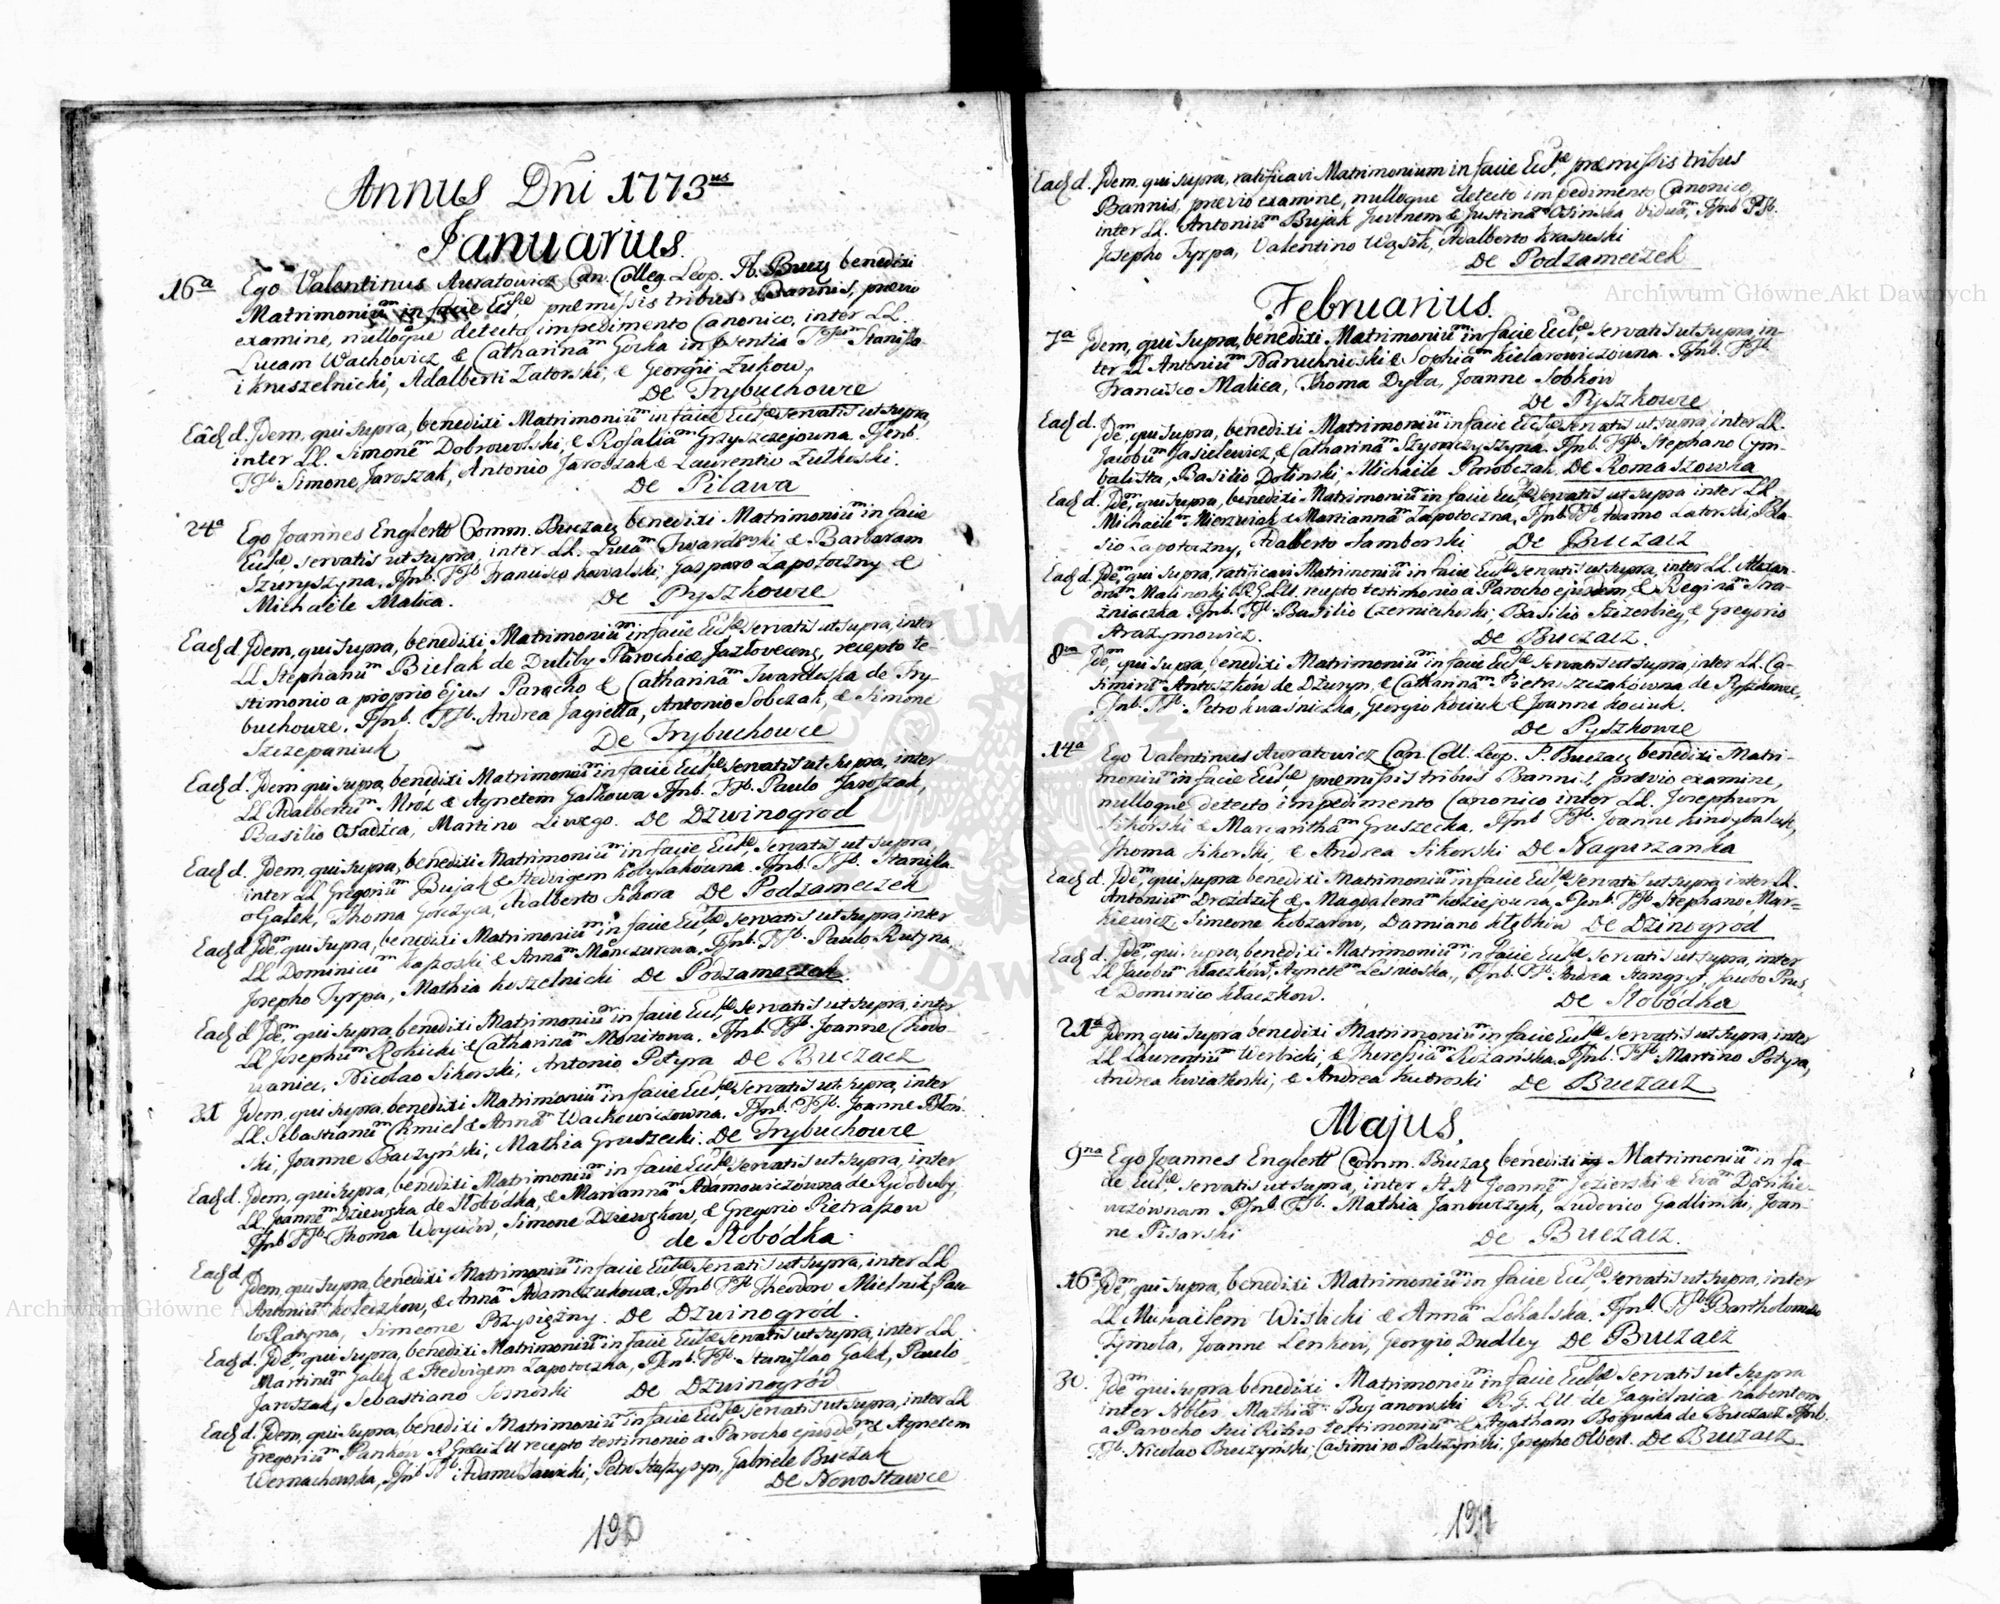 Annus Dni 1773us
Januarius.
16a Ego Valentinus Auratowicz Can. Colleg. Leop. P. Bucz benedixi
Matrimoniūm in facie Eclæ, præmissis tribus Bannis, prævio
examine, nulloque detecto impedimento Canonico, inter LL.
Lucam Wachowicz & Catharinam Gorka in præsentia TT Stanisla-
i kruszelnicki, Adalberti Zatorski, & Georgii Zukow,
De Trybuchowce
Ead d. Jdem, qui supra, benedixi Matrimoniūm in facie Eclæ servatis ut supra,
inter LL. Simonem Dobrowolski, & Rosaliam Grzyszczejowna. Pnb.
TTb. Simone Jaroszak, Antonio Jaroszak & Laurentio Zutkoski.
De Pilawa
24a Ego Joannes Englertt Comm. Buczac benedixi Matrimoniūm in facie
Eclæ servatis ut supra, inter LL. Lucam Twardoski & Barbaram
Szuryszyna. Pnb. TTb Francisco kowalski, Gasparo Zapotoczny &
Michaele Malica. De Pyszkowce
Ead d. Jdem, qui supra, benedixi, Matrimoniūm in facie Eclæ servatis ut supra, inter
LL Stephanūm Bielak de Duliby Parochiæ Jazlovecens, recepto te-
stimonio a proprio Ejus Parocho & Catharinam Twardoska de Try-
buchowce. Pnb. TTb. Andrea Jagiella, Antonio Sobczak, & Simone
Szczepaniuk De Trybuchowce
Ead d. Jdem qui supra, benedixi Matrimoniūm in facie Eclæ, servatis ut supra, inter
LL Adalbertūm Mroz & Agnetem Galkowa Pnb. TTb. Paulo Jaroszak,
Basilio Osadźca, Martino Liwego. De Dzwinogrod
Ead d. Jdem, qui supra, benedixi Matrimoniūm in facie Eclæ, servatis ut supra
inter LL Gregoriūm Bujak & Hedvigem kolysakowna. Pnb. TTb. Stanisla-
o Galek, Thoma Gorczyca, Adalberto Sikora De Podzameczek
Ead d. Jdem, qui supra, benedixi Matrimoniūm in facie Eclæ, servatis ut supra, inter
LL Dominicūm & Annam Manczurowa, Pnb. TTb. Paulo Rutyna,
Josepho Tyrpa, Mathia koszelnicki De Podzameczek
Ead d. Jdem, qui supra, benedixi Matrimoniūm in facie Eclæ, servatis ut supra, inter
LL Josephūm Rokicki & Catharinam Monitowa. Pnb. TTb. Joanne Chodo-
waniec. Nicolao Sikorski, Antonio Potyra De Buczacz
31 Jdem, qui supra, benedixi Matrimoniūm in facie Eclæ, servatis ut supra, inter
LL. Sebastianūm Chmiel & Annam Wachowiczowna. Pnb. TTb. Joanne Błoń-
ski, Joanne Baczyński, Mathia Gruszecki. De Trybuchowce
Ead d. Jdem, qui supra, benedixi Matrimoniūm in facie Eclæ servatis ut supra, inter
LL. Joannem Dziewęzka de Słobódka, & Mariannam Adamowiczówna de Rydoduby,
Pnb TTb. Thoma Woyciów, Simone Dziewęzkow, & Gregorio Pietraszow
de Słobódka.
Ead d.
Jdem, qui supra, benedixi Matrimoniūm in facie Eclæ servatis ut supra, inter LL
Antoniūm kołeczkow, & Annam Adamczukowa, Pnb TTb Theodoro Mielnik, Pau-
lo Ratyna, Simeone Przysiężny. De Dzwinogrod.
Ead d. Jdem, qui supra, benedixi Matrimoniūm in facie Eclæ servatis ut supra, inter LL
Martinūm Galek & Hedvigem Zapotoczka, Pnb. TTb. Stanislao Galek, Paulo
Jaroszak, Sebastiano Sosnoski De Dzwinogród
Ead d. Jdem, qui supra, benedixi Matrimoniūm in facie Eclæ servatis ut supra, inter LL
Gregoriūm Pankow R. Græci LU recepto testimonio a Parocho ejusdem, & Agnetem
Wernachowska, Pnb TTb: Adamo Sawicki, Petro Staszyszyn, Gabriele Buczak
De Nowostawce
190
Ead d. Jdem, qui supra, ratificavi Matrimonium in facie Eclæ, præmissis tribus
Bannis, prævio examine, nulloque detecto impedimento Canonico,
inter LL. Antoniūm Bujak Juvenem & Justinam Osinska Viduam, Pnb TTb.
Josepho Tyrpa, Valentino Wąsik, Adalberto krasuski
De Podzameczek
Februarius.
7a Jdem, qui supra, benedixi Matrimoniūm in facie Eclæ, servatis ut supra, in-
ter LL Antoniūm Naruchniwski & Sophiam kielarowiczowna. Pnb. TTb.
Francisco Malica, Thoma Dyla, Joanne Sobkow
De Pyszkowce
Ead d.
Jdem, qui supra, benedixi Matrimoniūm in facie Eclæ servatis ut supra, inter LL.
Jacobūm Jasielewicz, & Catharinam Szyomczyszyna. Pnb. TTb. Stephano Cym-
balista, Basilio Dolinski, Michaele Parobczak, De Romaszowka
Ead d. Jdem, qui supra, benedixi Matrimoniūm in facie Eclæ servatis ut supra inter LL
Michaelem Mierzwiak & Mariannam Zapotoczna, Pnb. TTb Adamo Zatorski, Bla-
sio Zapotoczny, Adalberto Jamborski De Buczacz
Ead d. Jdem, qui supra, ratificavi Matrimoniūm in facie Eclæ servatis ut supra, inter LL. Alexan-
drūm Malinoski R. G. LU. recepto testimonio a Parocho ejusdem, & Reginam Stra-
żniaczka Pnb. TTb. Basilio Czerniehoski, Basilio Szczerbiey, & Gregorio
Arazymowicz. De Buczacz.
8va Jdem, qui supra, benedixi Matrimoniūm in facie Eclæ servatis ut supra, inter LL. Ca-
simirūm Antoszków de Dżuryn, & Catharinam Pietraszczakówna de Pyszkowce,
Pnb. TTb. Petro kwaśniczka, Georgio kociuk & Joanne kociuk.
De Pyszkowce
14a Ego Valentinus Auratowicz Can. Coll. Leop. P. Buczac benedixi Matri-
moniūm in facie Eclæ, præmissis tribus Bannis, prævio examine,
nulloque detecto impedimento Canonico inter LL. Josephum
Sikorski & Margaritham Gruszecka. Pnb TTb. Joanne kindybaluk,
Thoma Sikorski, & Andrea Sikorski De Nagurzanka
Ead d. Jdem, qui supra benedixi Matrimoniūm in facie Eclæ servatis ut supra, inter LL.
Antoniūm Drożdzik & Magdalenam koziejowna. Pnb. TTb Stephano Mar-
kiewicz, Simeone kobzarow, Damiano kłębkiw De Dzinogród
Ead d. Jdem, qui supra, benedixi Matrimoniūm in facie Eclæ servatis ut supra, inter
LL Jacobūm kłaczków, Agnetem Lesnioska, Pnb. TTb. Andrea Stangryt, Jacobo Prus,
& Dominico kłaczkow. De Słobódka
21a Jdem, qui supra benedixi Matrimoniūm in facie Eclæ servatis ut supra, inter
LL Laurentiūm Werbicki, & Theresiam Rożańska. Pnb. TTb Martino Potyra,
Andrea kwiatkoski, & Andrea kutroski De Buczacz
Majus.
9na Ego Joannes Englertt Comm. Buczac benedixi Matrimoniūm in fa-
cie Eclæ, servatis ut supra, inter AA Joannem Jezierski & Evam Daszkie-
wiczównam Pnb. TTb. Mathia Janowczyk, Ludovico Gadlinski, Joan-
ne Pisarski De Buczacz.
16a Jdem, qui supra, benedixi Matrimoniūm in facie Eclæ, servatis ut supra, inter
LL Michaelem Wislicki & Annam Lokalska. Pnb. TTb Bartholomæo
Tymola, Joanne Lenkow, Georgio Dudley De Buczacz
30. Jdem qui supra benedixi Matrimoniūm in facie Eclæ servatis ut supra
inter Nbles Mathiam Bujanowski R. G. LU de Jagielnica habentem
a Parocho sui Ritus testimoniūm & Agatham Bogucka de Buczacz Pnb.
TTb. Nicolao Buczyński, Casimiro Palczynski, Josepho Olbert. De Buczacz
191
Archiwum Główne Akt Dawnych